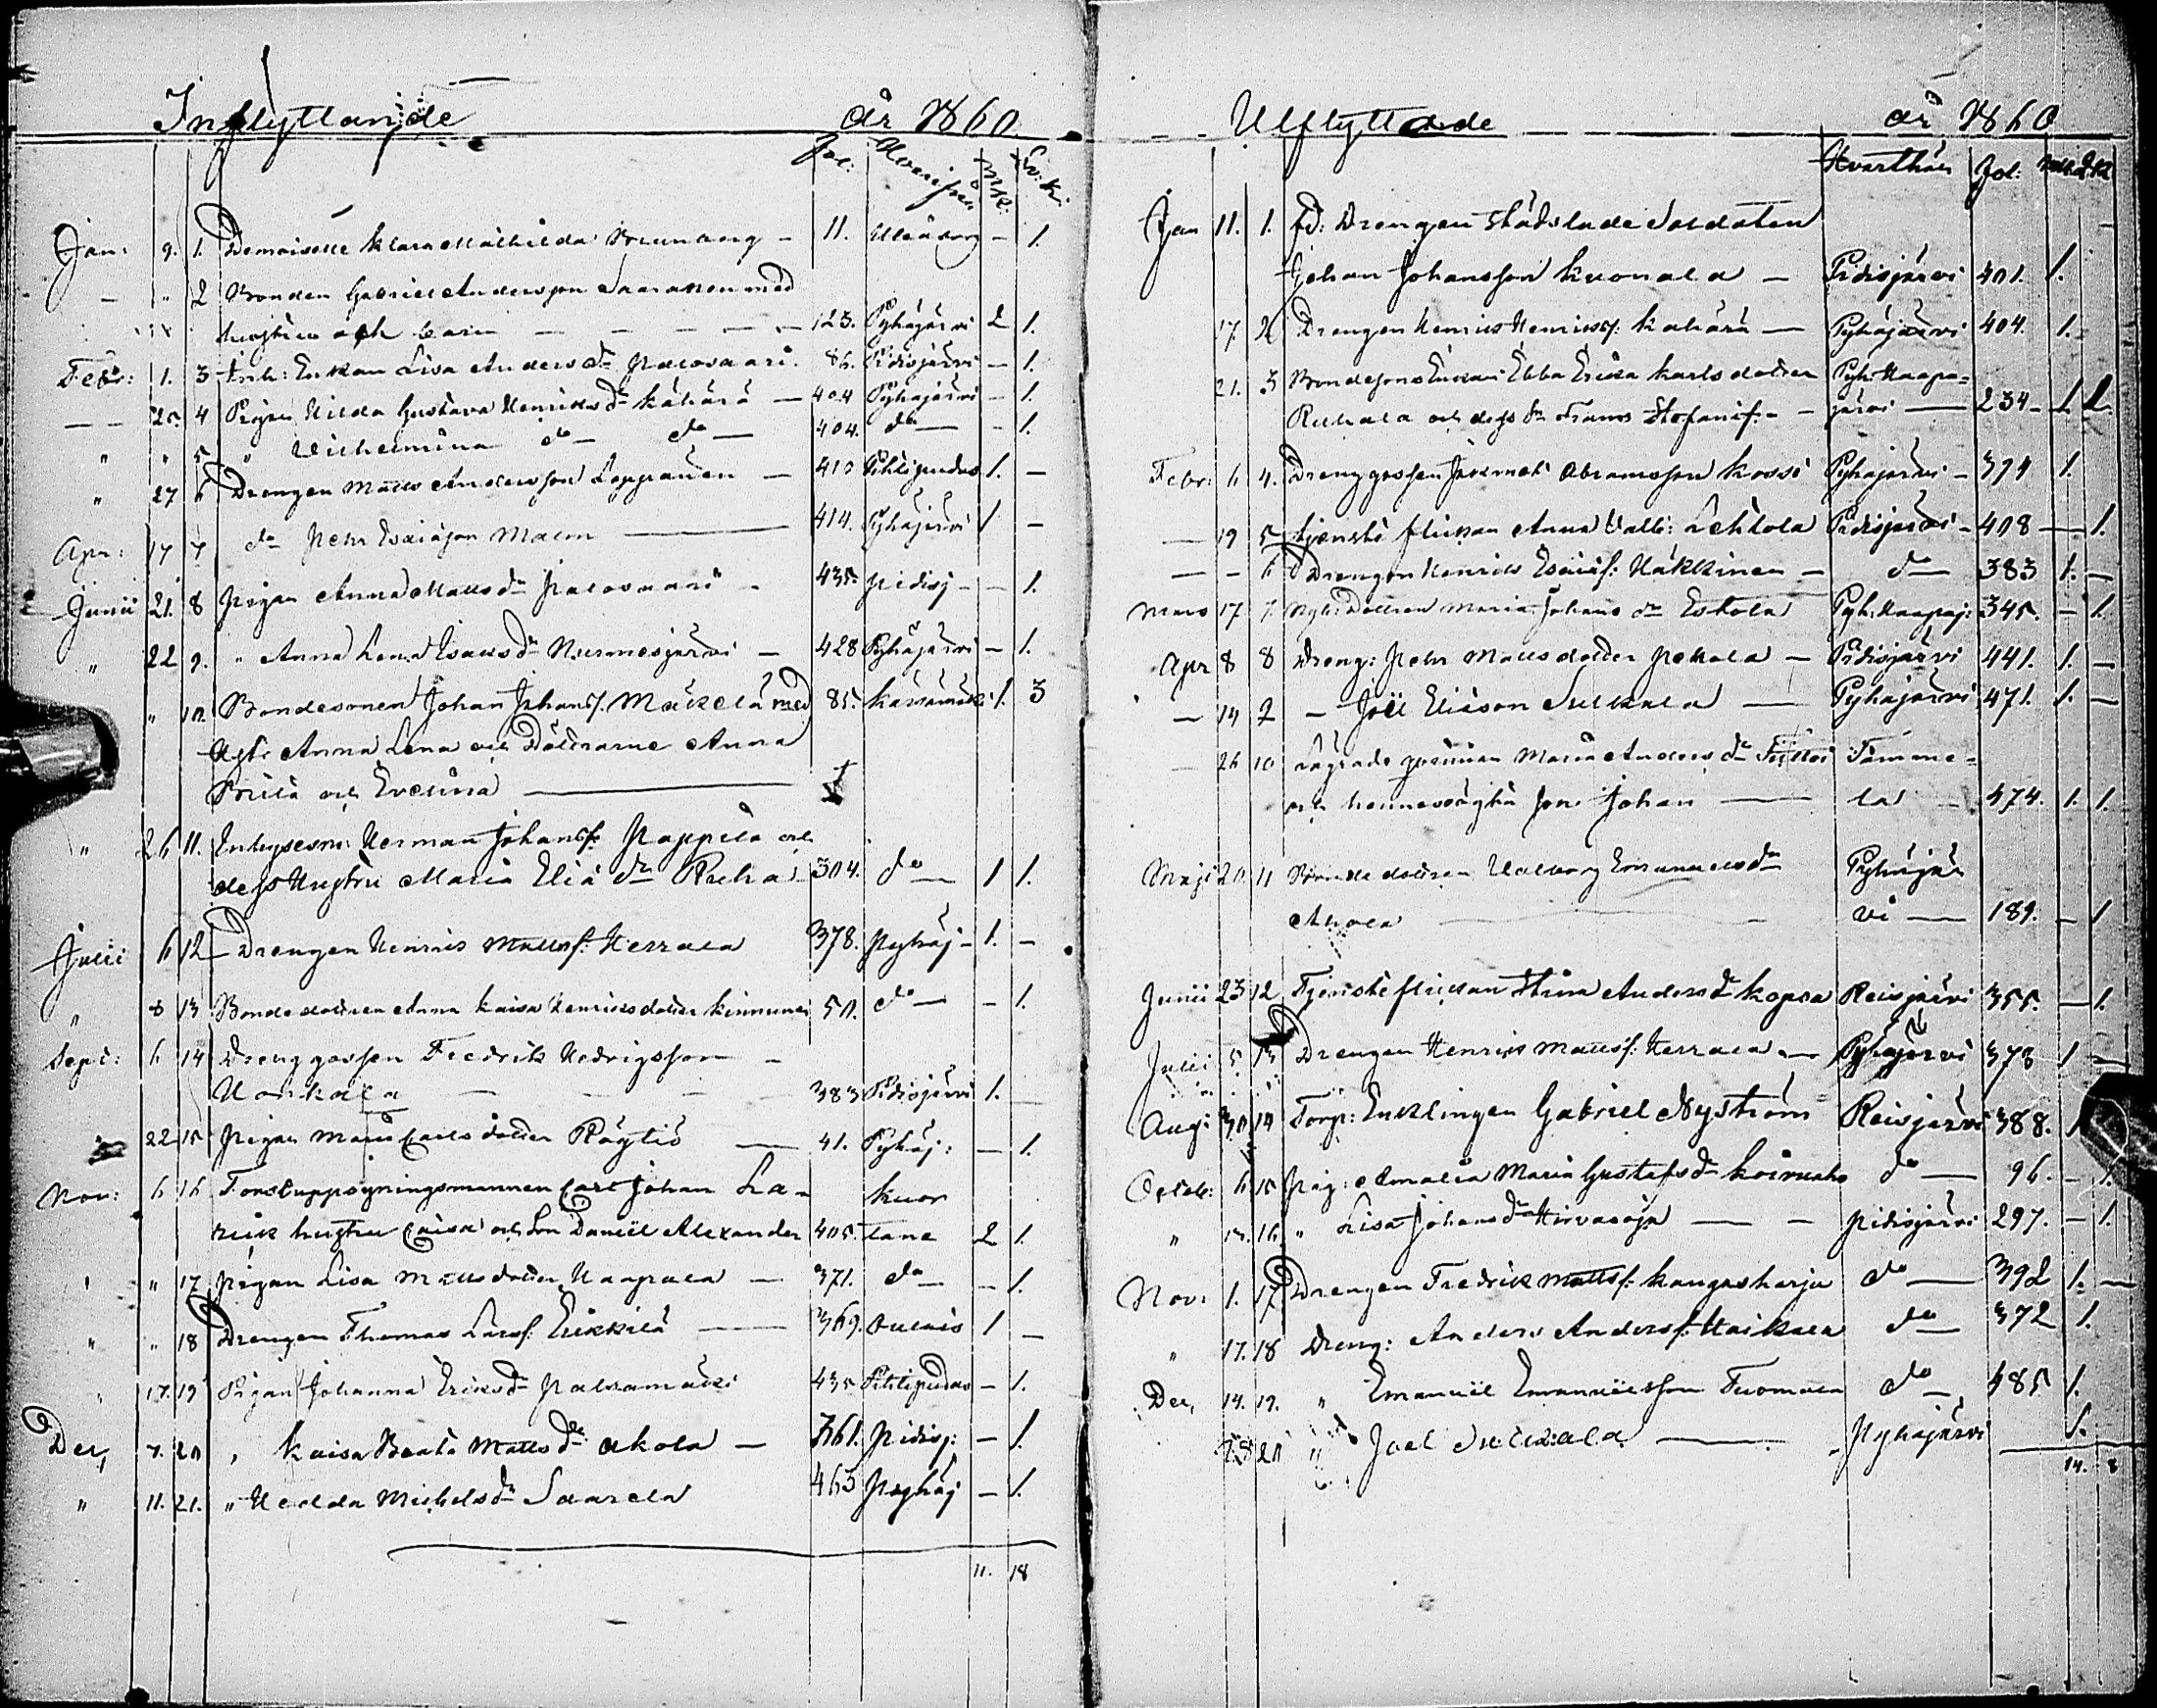 Inflyttande år 1860
Fol: Hvarifrån M.K. Qv:K.
Jan: 9. 1. Demoiselle Klara Mathilda - 11. Uleåborg - 1.
- " 2 Bonden Gabriel Andersson Saaranen med
hustru och barn - 123. Pyhäjärvi 2 1.
Febr: 1. 3 Inh: Enkan Lisa Anders dr Palosaari. 86. Pidisjärvi - 1.
- 25. 4 Pigan Hilda Gustava Henriks dr Kähärä - 404 Pyhäjärvi - 1.
" " 5 " Vilhelmina do - do - 404. do - - 1.
" 27 6 Drengen Matts Andersson Leppänen - 410 Pihtipudas 1. -
Apr: 17 7 do Pehr Esaiasson Malm - 414. Pyhäjärvi 1 -
Junii 21. 8 Pigan Anna Matts dr Palosaari - 435. Pidisj - - 1.
" 22 9. " Anna Lena Esaks dr Nurmesjärvi - 428 Pyhäjärvi - 1.
" 10. Bondesonen Johan Johansf. Mäkelä med 85. Kärsämäki 1. 3
Hust: Anna Lena och Döttrarne Anna
Brita och Evelina -
" 26 11. Inhysesm: Herman Johansf. Pappila och
dess Hustru Maria Eliæ dr Ruha - 304. do - 1 1.
Julii 6 12 Drengen Henrik Mattsf: Herrala 378. Pyhäj - 1. -
" 8 13 Bondedottren Anna Kaisa Henriksdotter Kinnunen 50. do - - 1.
Sept: 6 14 Drenggossen Fredrik Hedrigsson -
Honkala - 383 Pidisjärvi 1. -
22 15 Pigan Maria Carlsdotter Räytiö - 41. Pyhäj: - 1.
Nov: 6 16 Forstuppsyningsmannen Carl Johan La- Kuor
rick hustru Caisa och Son Daniel Alexander 405. tane 2 1.
" " 17 Pigan Lisa Mattsdotter Haapala - 371. do - - 1.
" " 18 Drengen Thomas Larsf. Erikkilä - 369. Oulais 1 -
" 17. 19 Pigan Johanna Eriks dr Palsamäki 435 Pihtipudas - 1.
Dec, 7. 20 " Kaisa Beata Matts dr Ahola - 361. Pidisj: - 1.
" 11. 21. " Hedda Michels dr Saarela 463 Pyhäj - 1.
11. 18
Utflyttande år 1860
Hvarthän Fol:
Jan 11. 1. Fd: Drengen städslade Soldaten
Johan Johansson Kuonala - Pidisjärvi 401. 1.
17. 2 Drengen Henrik Henriksf: Kähärä - Pyhäjärvi 404. 1. -
21. 3 Bondesons Enkan Ebba Erika Karlsdotter Pyh: Haapa=
Ruhala och dess Frans Stefanif. - järvi - 234 - 1 1.
Febr: 6 4. Drenggossen Abramsson Kossi Pyhäjärvi - 394 1.
- 19 5 Tjensteflickan Anna Lehtola Pidisjärvi - 408 - 1.
- - 6 Drengen Henrik Esaiæf. Häkkinen - do - 383 1. -
Mars 17 7. Dottren Maria Johans dr Eskola Pyh: Haapaj: 345. - 1.
Apr 8 8 Dreng: Pehr Mattsdotter Pekola - Pidisjärvi 441. 1. -
- 14 9 - Joel Eliæson Sulkala - Pyhäjärvi 471. 1. -
- 26 10 qvinnan Maria Anders dr Tamme-
och hennes oägta son Johan - la - 474. 1. 1.
Maji 20. 11 Bondedottren Valborg Emanuels dr Pyhäjär
Ahola - vi - 189. - 1
Junii 23 12 Tjensteflickan Stina Anders dr Kopsa Reisjärvi 355. - 1.
Julii 5 13 Drengen Henrik Mattsf: Herrala - Pyhäjärvi 378 1 -
Aug: 30 14 Torp: Enklingen Gabriel Nyström Reisjärvi 388. 1
Octob: 6 15 Pig: Amalia Maria Gustafs dr Koiraaho do - 96. - 1.
" 16. " Lisa Johans dr Hirvasoja - - Pidisjärvi 297. - 1.
Nov: 1. 17 Drengen Fredrik Mattsf: Kangasharju do - 392 1. -
" 17. 18 Dreng: Anders Andersf: Haikala do - 372 1.
Dec, 14. 19. " Emanuel Emanuelsson Tuomala do - 485 1.
20 " Joel Sulkala - Pyhäjärvi 1.
14. 8